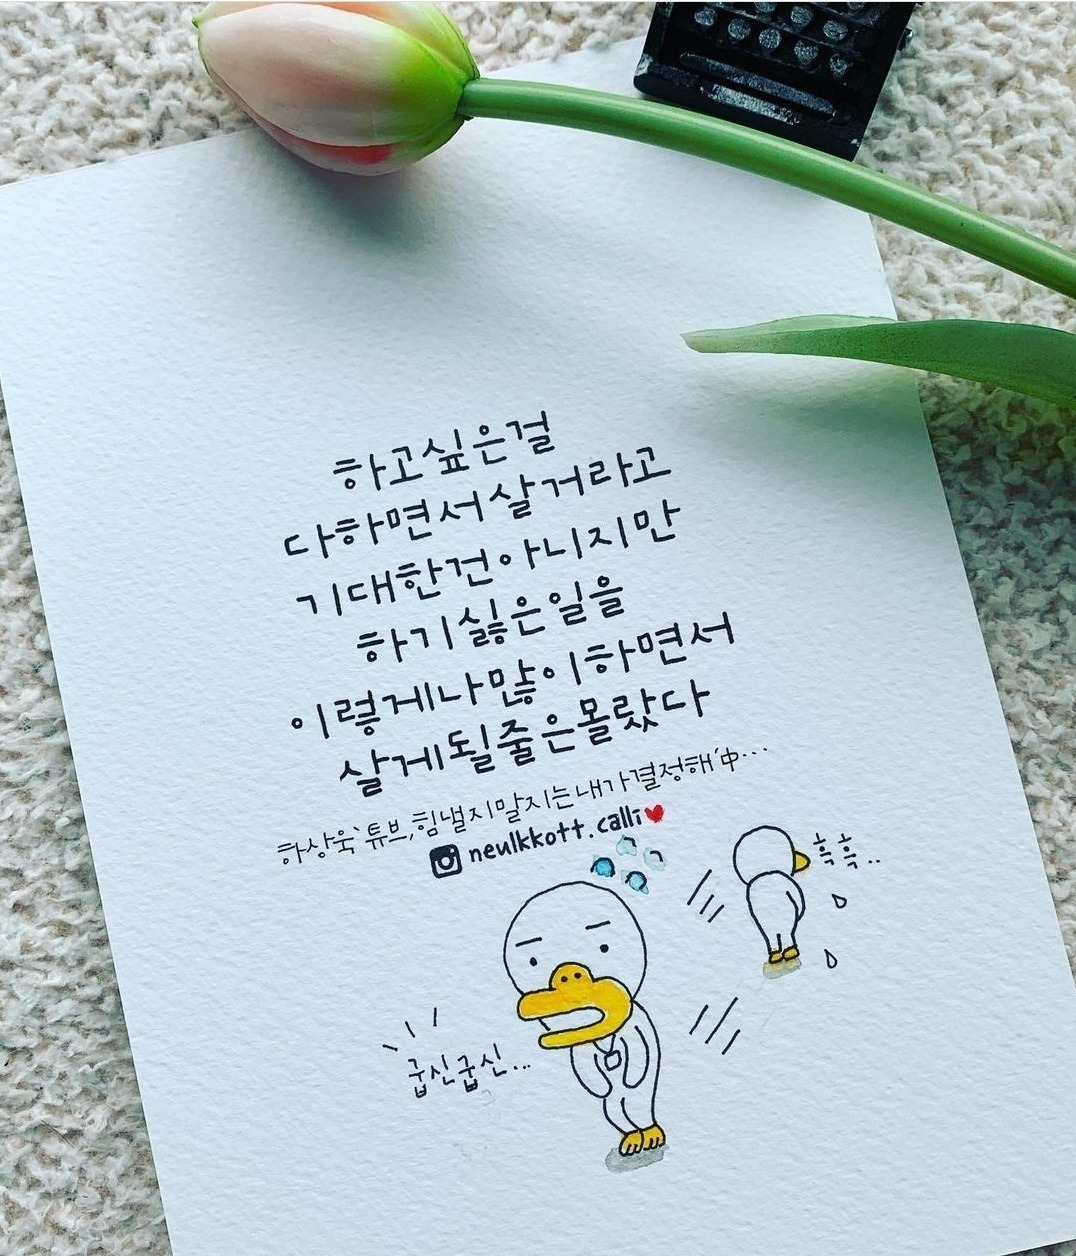 하고싶은걸
다하면서살거라고
기대한건아니지만
하기싫은일을
이렇게나많이하면서
살게될줄은몰랐다
하상욱`튜브,힘낼지말지는내가결정해'中...
neulkkott.calli
흑흑..
굽신굽신...